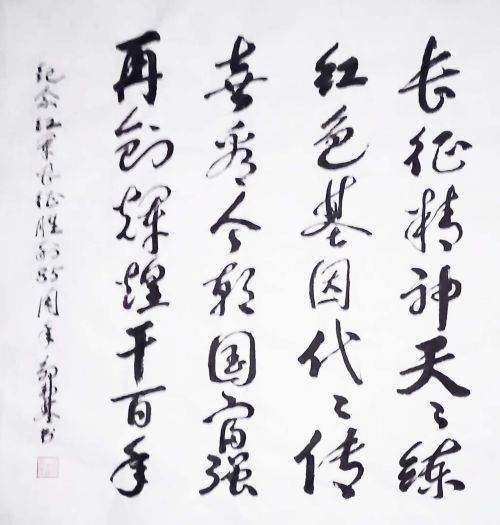 长征精神天〻练
红色基因代〻传
喜看今朝国富强
再创辉煌千百年
纪念红军长征胜利85周年